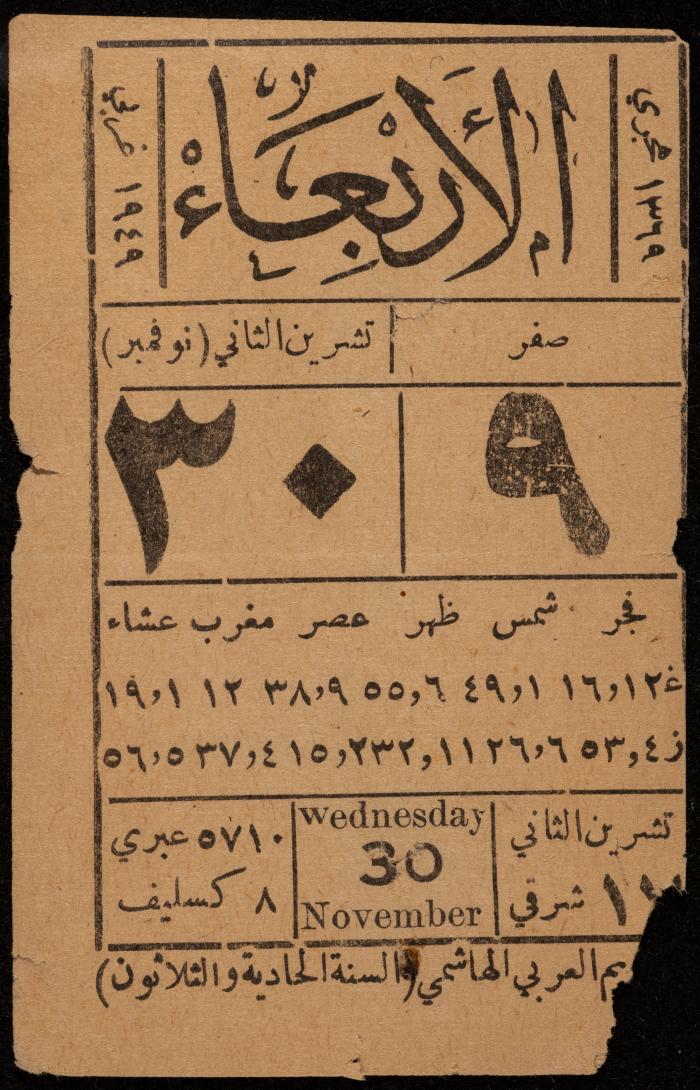 ١٣٦٩ هجري
الأَرْبِعَاءْ
١٩٤٩ غربي
صفر
تشرين الثاني (نوفمبر)
٩
٣٠
فجر شمس ظهر عصر مغرب عشاء
غ ١٢,١٦ ١,٤٩ ٦,٥٥ ٩,٣٨ ١٢ ١,١٩
ز ٤,٥٣ ٦,٢٦ ١١,٣٢ ٢,١٥ ٤,٣٧ ٥,٥٦
تشرين الثاني
شرقي
Wednesday
30
November
٥٧١٠ عبري
٨ كسليف
العربي الهاشمي (السنة الحادية والثلاثون)